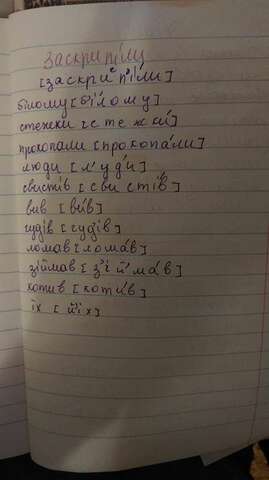 заскрипіли
[заскриᵉп'і́ли]
білому [б'і́лому]
стежки [стежки́]
прокопали [прокопа́ли]
люди [л'у́ди]
свистів [свисті́в]
вив [ви́в]
гудів [гуді́в]
ломав [лома́в]
зіймав [з'ійма́в]
котив [коти́в]
їх [йіх]